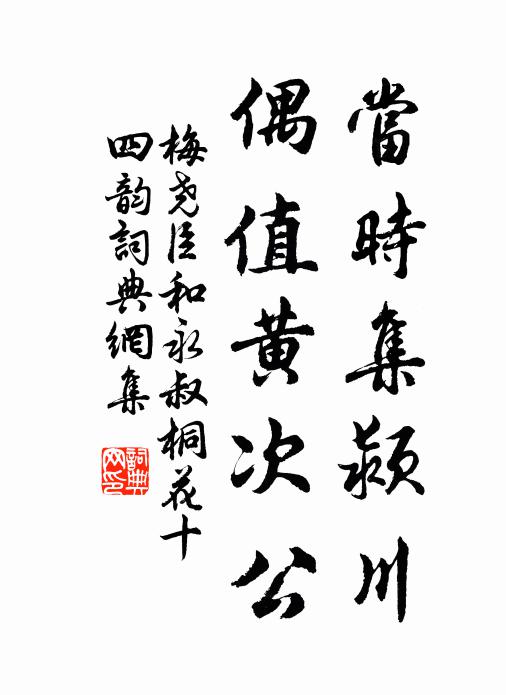 當時集潁川
偶值黄次公
梅尧臣和永叔桐花十
四韵詞典網集
詞典
网印